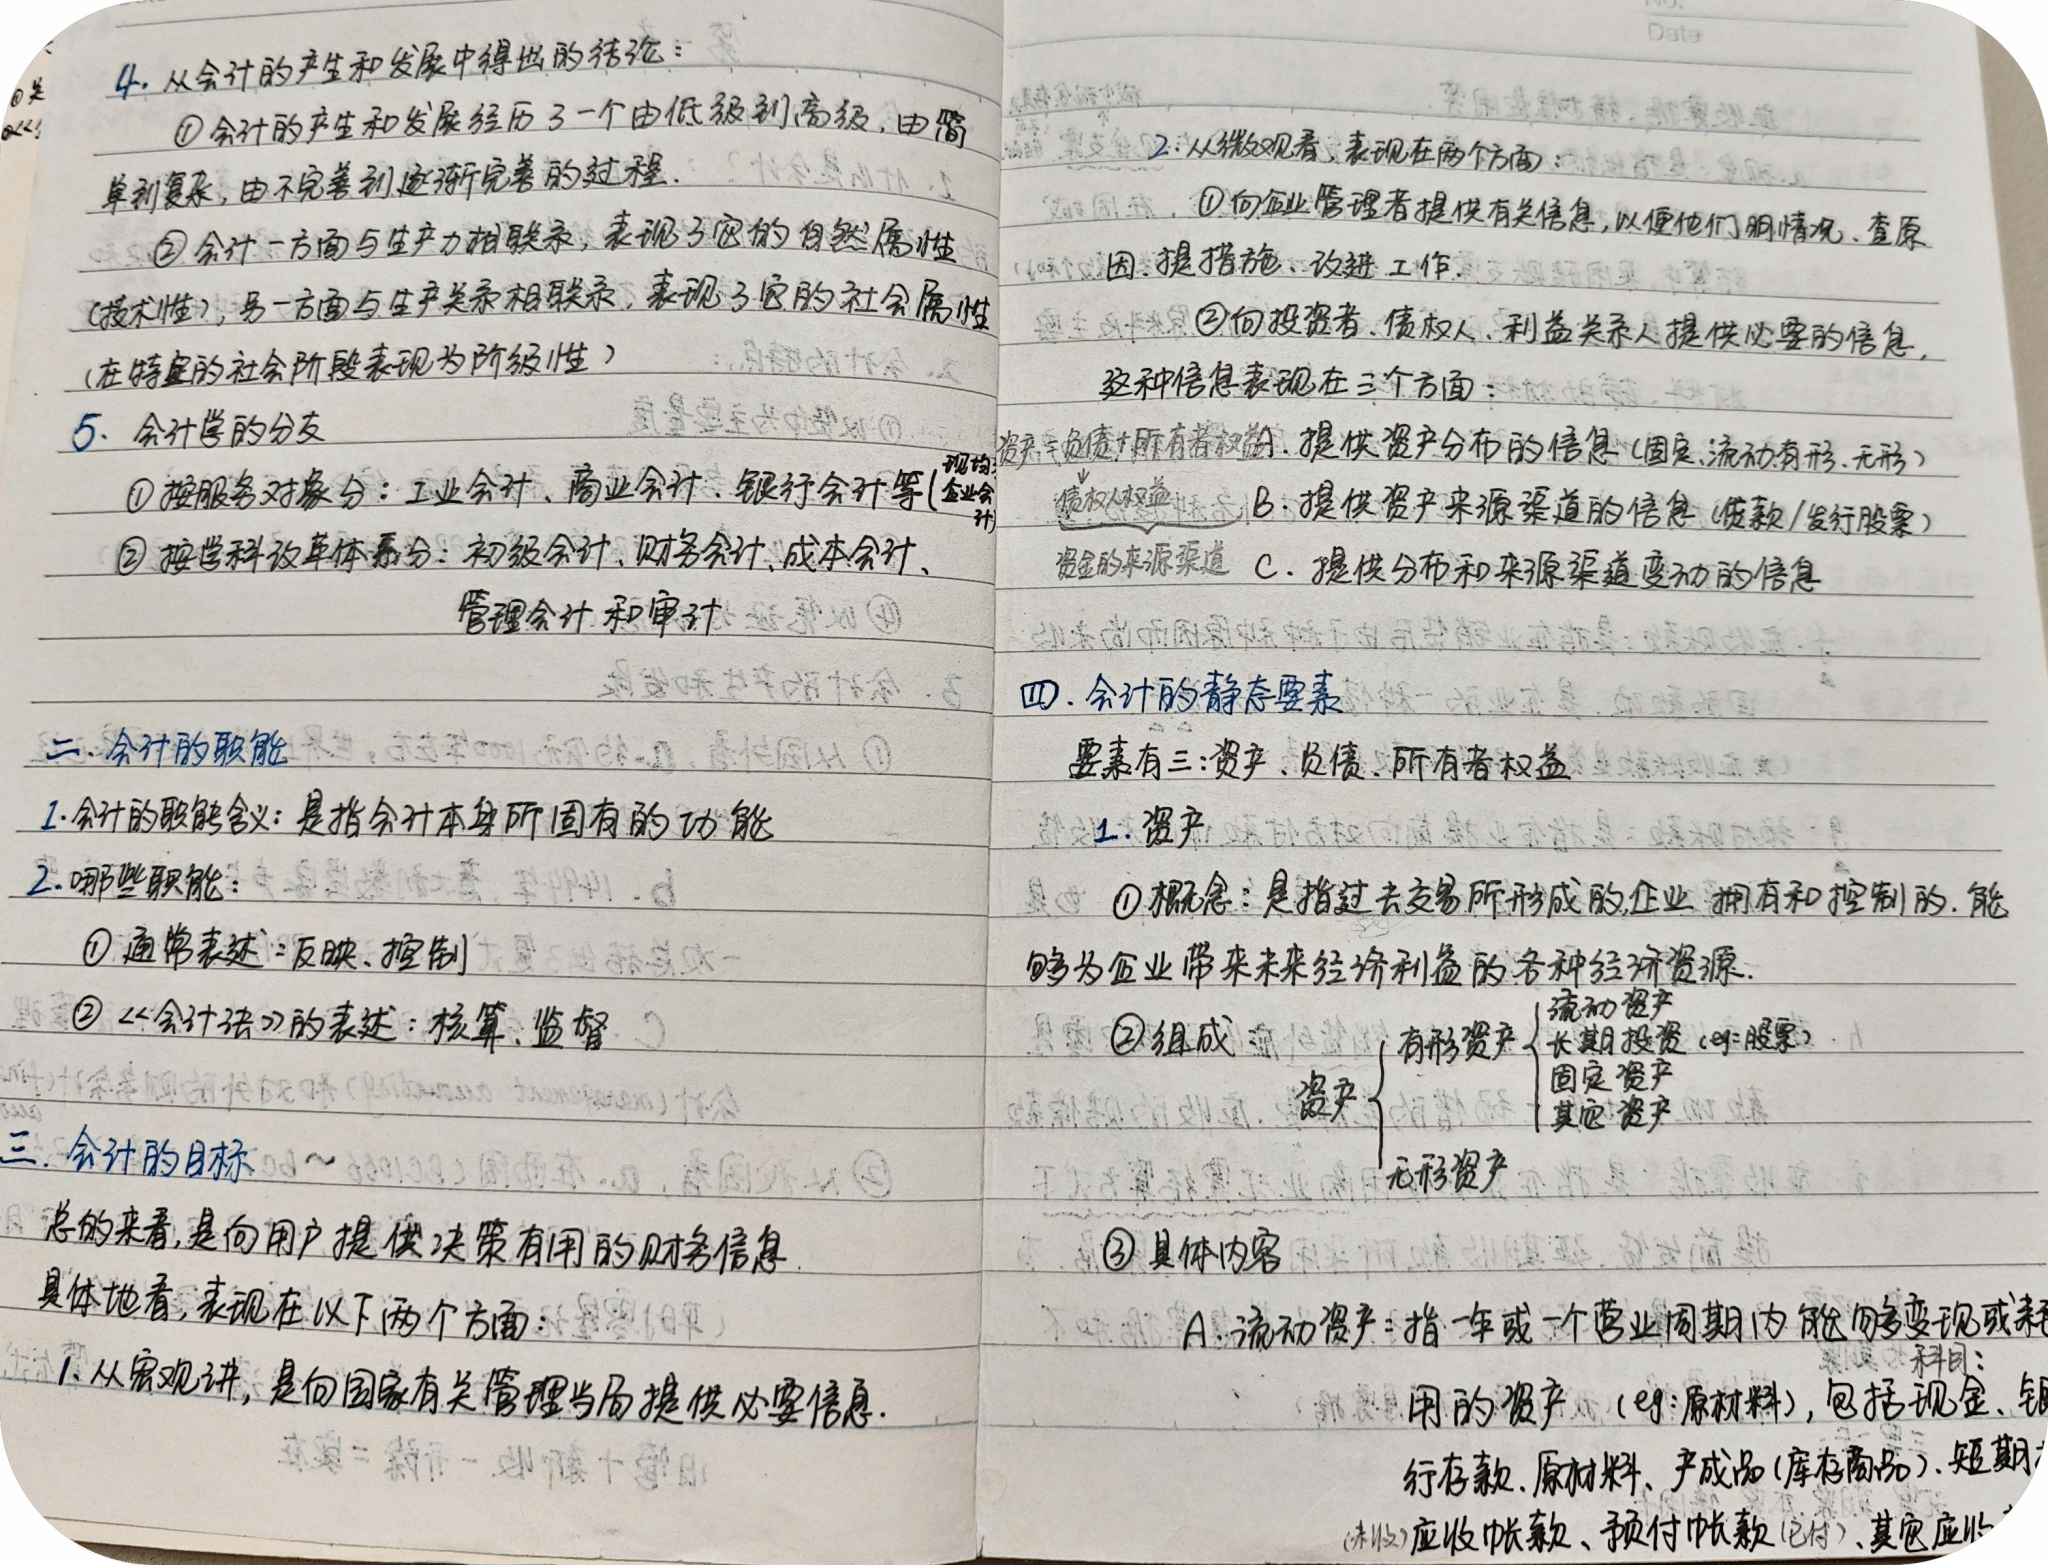 4. 从会计的产生和发展中得出的结论：
①会计的产生和发展经历了一个由低级到高级，由简
单到复杂，由不完善到逐渐完善的过程.
②会计一方面与生产力相联系，表现了它的自然属性
（技术性），另一方面与生产关系相联系，表现了它的社会属性
（在特定的社会阶段表现为阶级性）
5. 会计学的分支
①按服务对象分：工业会计、商业会计、银行会计等（现均
企业会
计）
②按学科改革体系分：初级会计、财务会计、成本会计、
管理会计和审计
二.会计的职能
1.会计的职能含义：是指会计本身所固有的功能
2.哪些职能：
①通常表述：反映、控制
②《会计法》的表述：核算、监督
三.会计的目标
总的来看，是向用户提供决策有用的财务信息.
具体地看，表现在以下两个方面：
1.从宏观讲，是向国家有关管理当局提供必要信息.
No.
Date
2.从微观看，表现在两个方面：
①向企业管理者提供有关信息，以便他们明情况、查原
因、提措施、改进工作.
②向投资者、债权人、利益关系人提供必要的信息，
这种信息表现在三个方面：
资产=负债+所有者权益
债权人权益
资金的来源渠道
A.提供资产分布的信息（固定、流动、有形、无形）
B.提供资产来源渠道的信息（贷款/发行股票）
C.提供分布和来源渠道变动的信息
四.会计的静态要素
要素有三：资产、负债、所有者权益
1.资产
①概念：是指过去交易所形成的，企业拥有和控制的.能
够为企业带来未来经济利益的各种经济资源.
②组成
资产
有形资产
流动资产
长期投资（eg：股票）
固定资产
其它资产
无形资产
③具体内容
A.流动资产：指一年或一个营业周期内能够变现或耗
科目：
用的资产（eg：原材料），包括现金、银
行存款、原材料、产成品（库存商品）、短期
（未收）应收帐款、预付帐款（已付）、其它应收